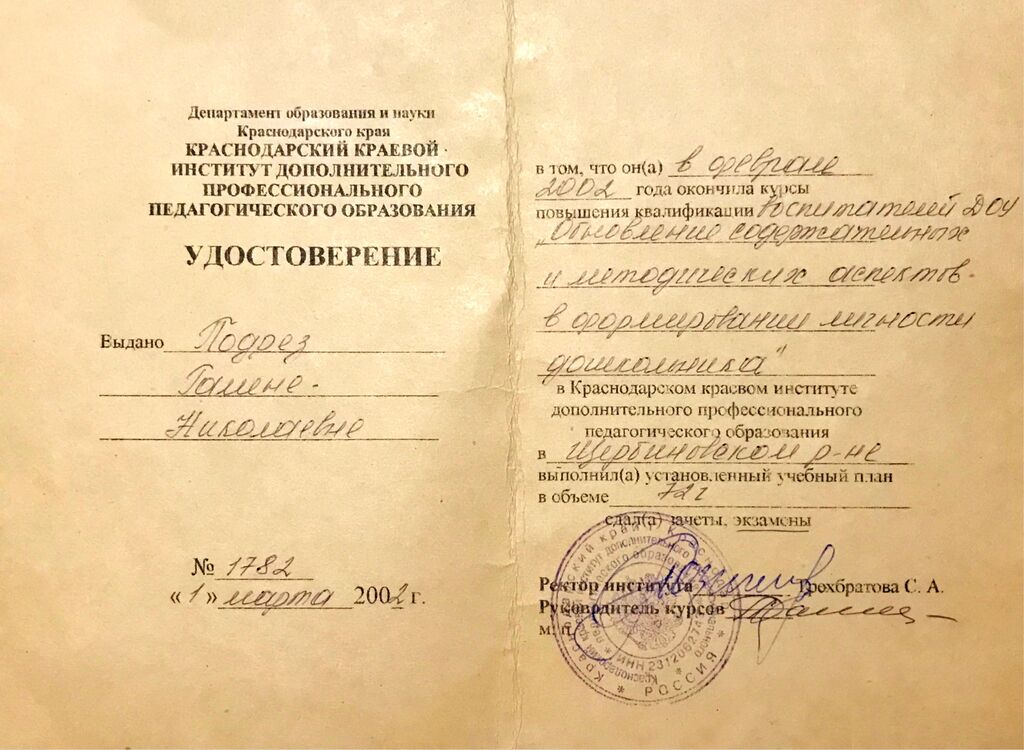 Департамент образования и науки
Краснодарского края
КРАСНОДАРСКИЙ КРАЕВОЙ
ИНСТИТУТ ДОПОЛНИТЕЛЬНОГО
ПРОФЕССИОНАЛЬНОГО
ПЕДАГОГИЧЕСКОГО ОБРАЗОВАНИЯ
УДОСТОВЕРЕНИЕ
Выдано Подрез
Галине
Николаевне
№ 1782
« 1 » марта 2002 г.
в том, что он(а) в феврале
2002 года окончила курсы
повышения квалификации воспитателей ДОУ
„Обновление содержательных
и методических аспектов
в формировании личности
дошкольника"
в Краснодарском краевом институте
дополнительного профессионального
педагогического образования
в Щербиновском р-не
выполнил(а) установленный учебный план
в объеме 72 г
сдал(а) зачеты, экзамены
Ректор института Трехбратова С. А.
Руководитель курсов
м. п.
РОССИЯ